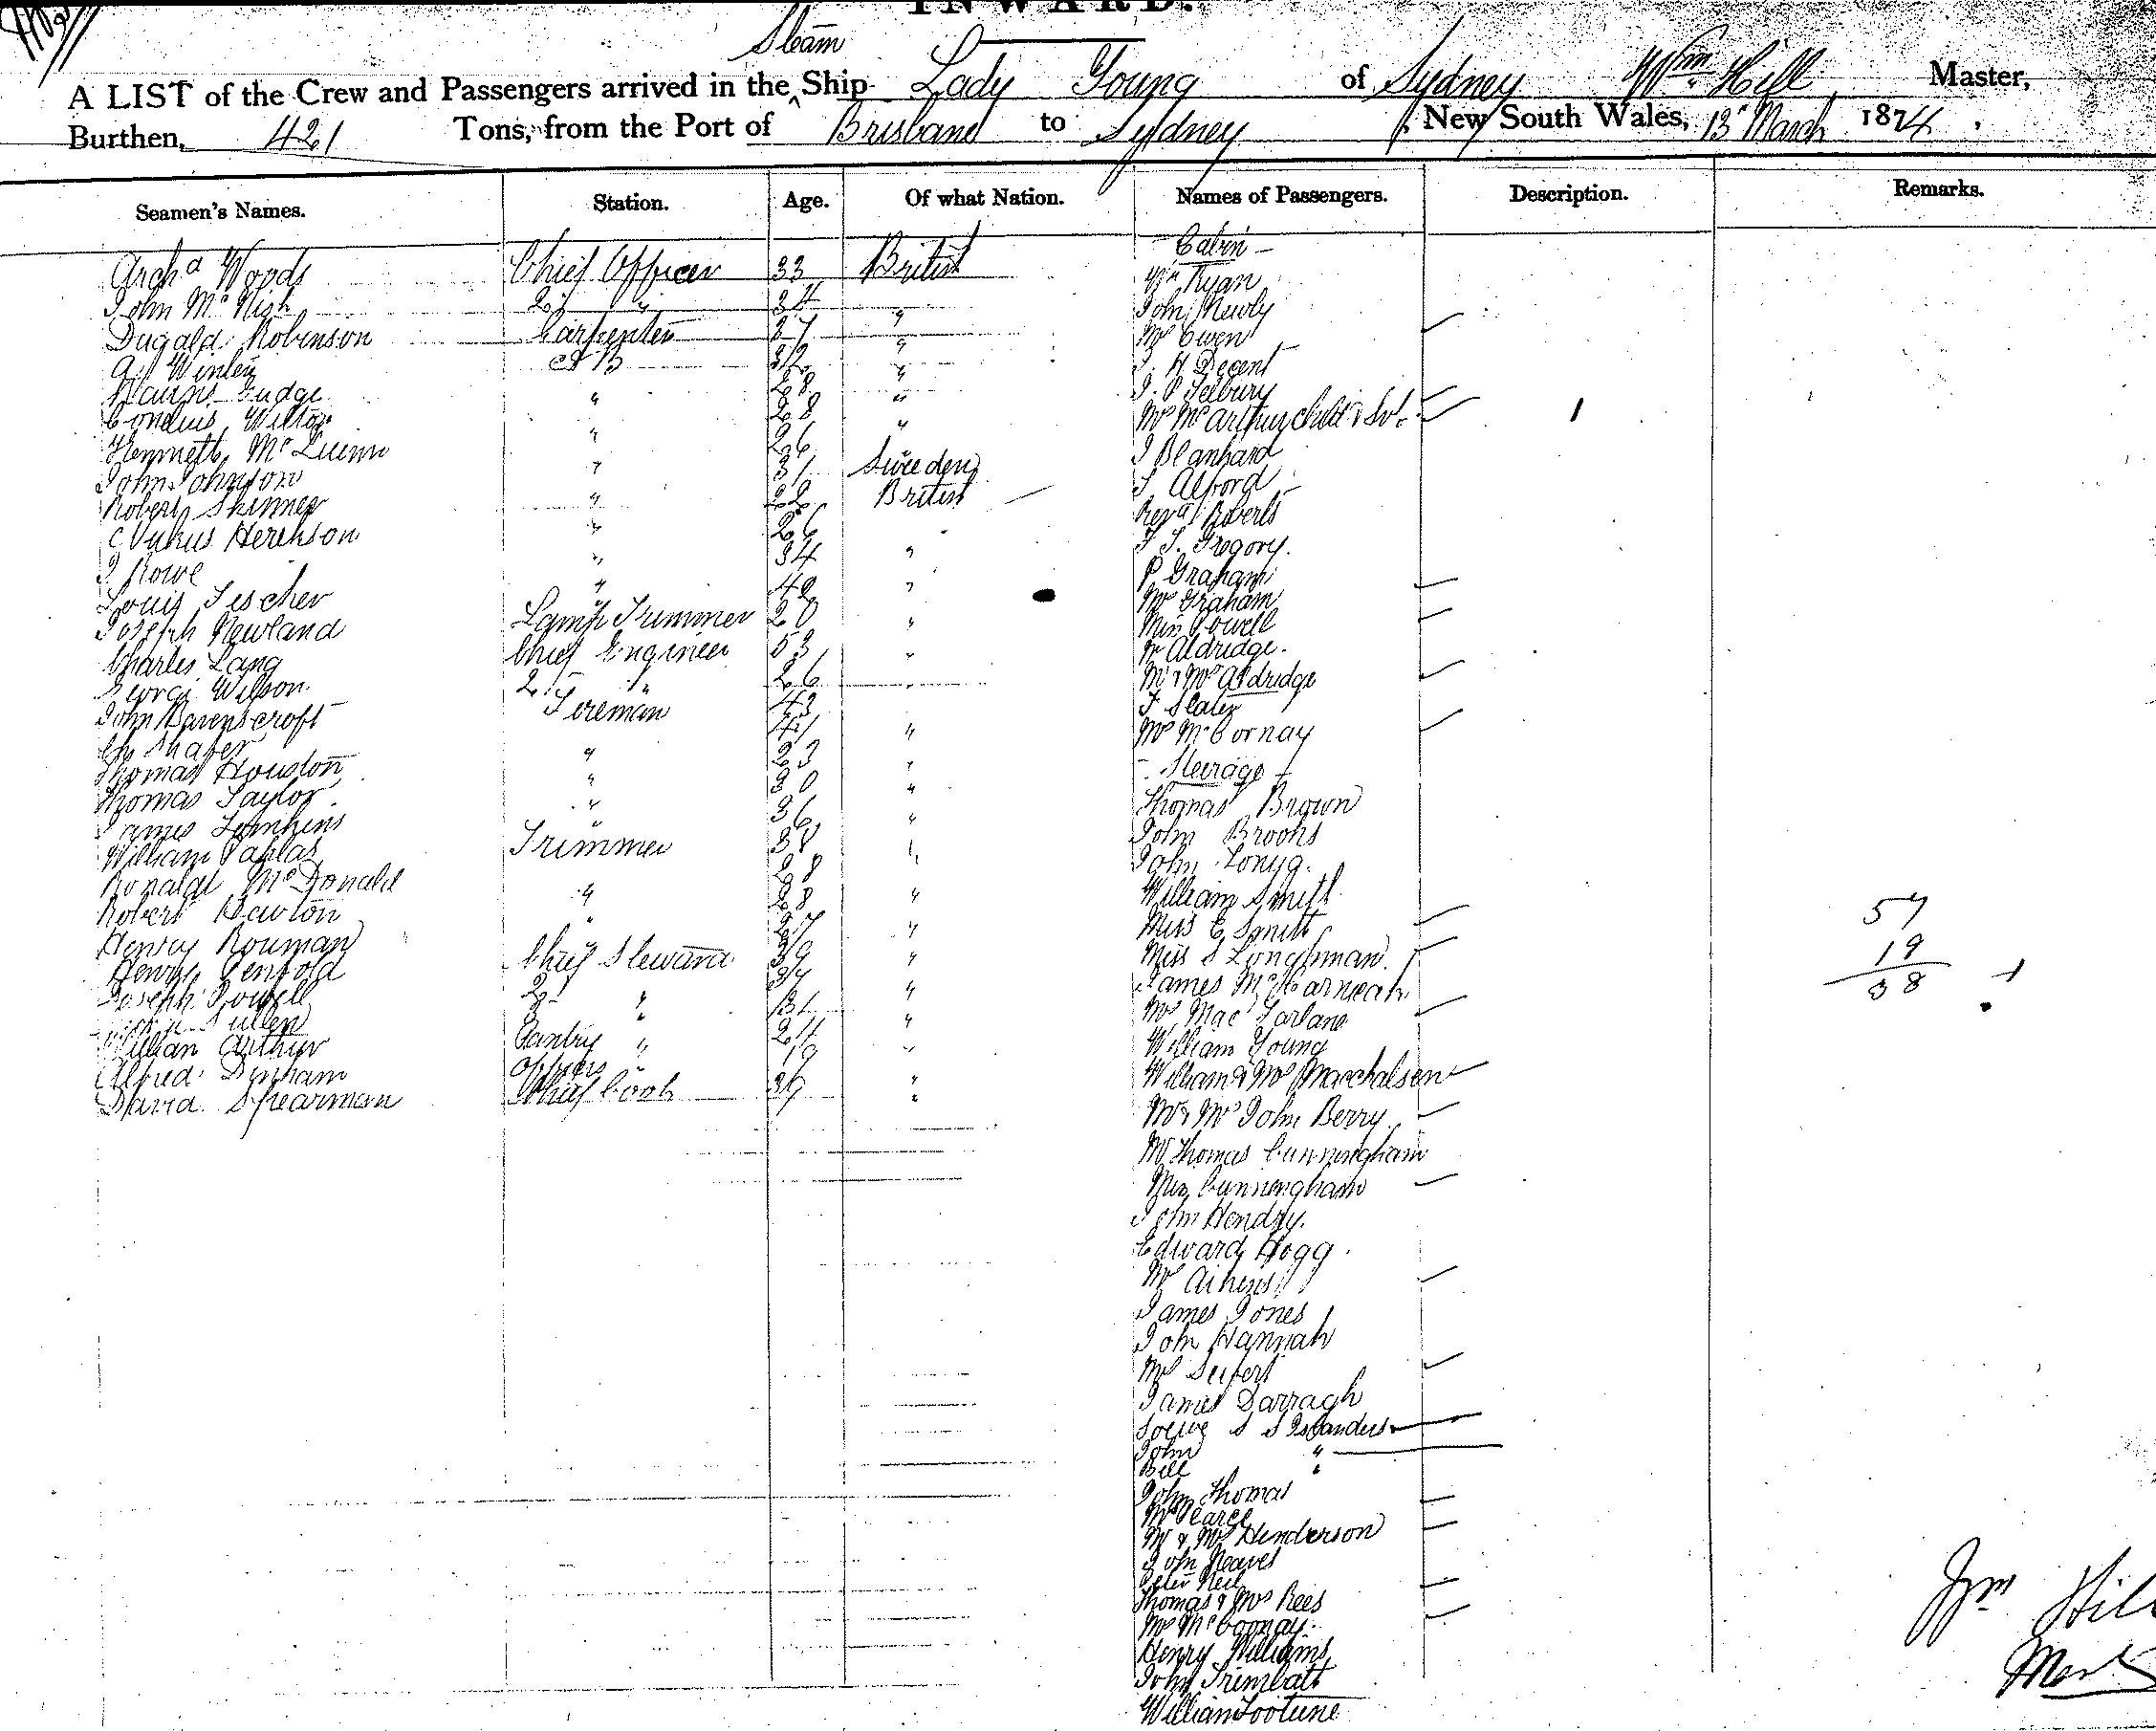 INWARD.
Steam
A LIST of the Crew and Passengers arrived in the ^ Ship Lady Young of Sydney Wm Hill Master,
Burthen, 421 Tons, from the Port of Brisbane to Sydney, New South Wales, 13 March 1874,
Seamen's Names. Station. Age. Of what Nation. Names of Passengers. Description. Remarks.
Archd Woods Chief Officer 33 British
John McNish 2 " 34 "
Dugald Robinson Carpenter 37 "
A. AB 32 "
Judge " 28 "
Wilton " 28 "
Kenneth Mc 26
John Johnson " 31 Sweden
Robert Skinner " 22 British
26
J Rowe " 34 "
Louis Tescher " 42 "
Joseph Newland Lamp Trimmer 20 "
Charles Lang Chief Engineer 53 "
George Wilson 2 " 26 "
John Ravenscroft Fireman 43
Shafer 41 "
Thomas Houston " 23 "
Thomas Taylor " 30 "
James Tomkins " 36 "
William Trimmer 38
Ronald McDonald 28
Robert Dawton " 28 "
Henry Bouman " 27 "
Henry Penfold Chief Steward 39 "
Joseph Powell 2 " 34 "
Cullen 3 " 31 "
William Arthur Pantry " 24 "
Alfred Dunham Officers " 19 "
David Spearman Chief Cook 37 "
Cabin
Wm Ryan
John Newly
Mrs Owen
J. H Decent
J. P Selbury
Mrs McArthur child & Svt
J Blanhard
Alford
Revd J Roberts
F. J. Gregory.
P Graham
Mrs Graham
Miss Powell
Aldridge.
Mr & Mrs Aldridge
F Slater
Mrs McCornay
Steerage
Thomas Brown
John Brooks
John Long.
William Smith
Miss E Smith
Miss S Longhman
James
Mrs MacFarlane
William Young
William & Mrs
Mr & Mrs John Berry
Mr Thomas Cunningham
Mrs Cunningham
John Hendry.
Edward Hogg.
Mrs Aikens
James Jones
John Hannah
Mrs Seifert
James Darragh
S S Islanders
John "
Bill "
John Thomas
Mrs Pearce
Mr & Mrs Henderson
John Neaves
Peter Neil
Thomas & Mrs Rees
Mrs McCoonay
Henry Williams
John Trembath
William Footune
57
19
38
Wm Hill